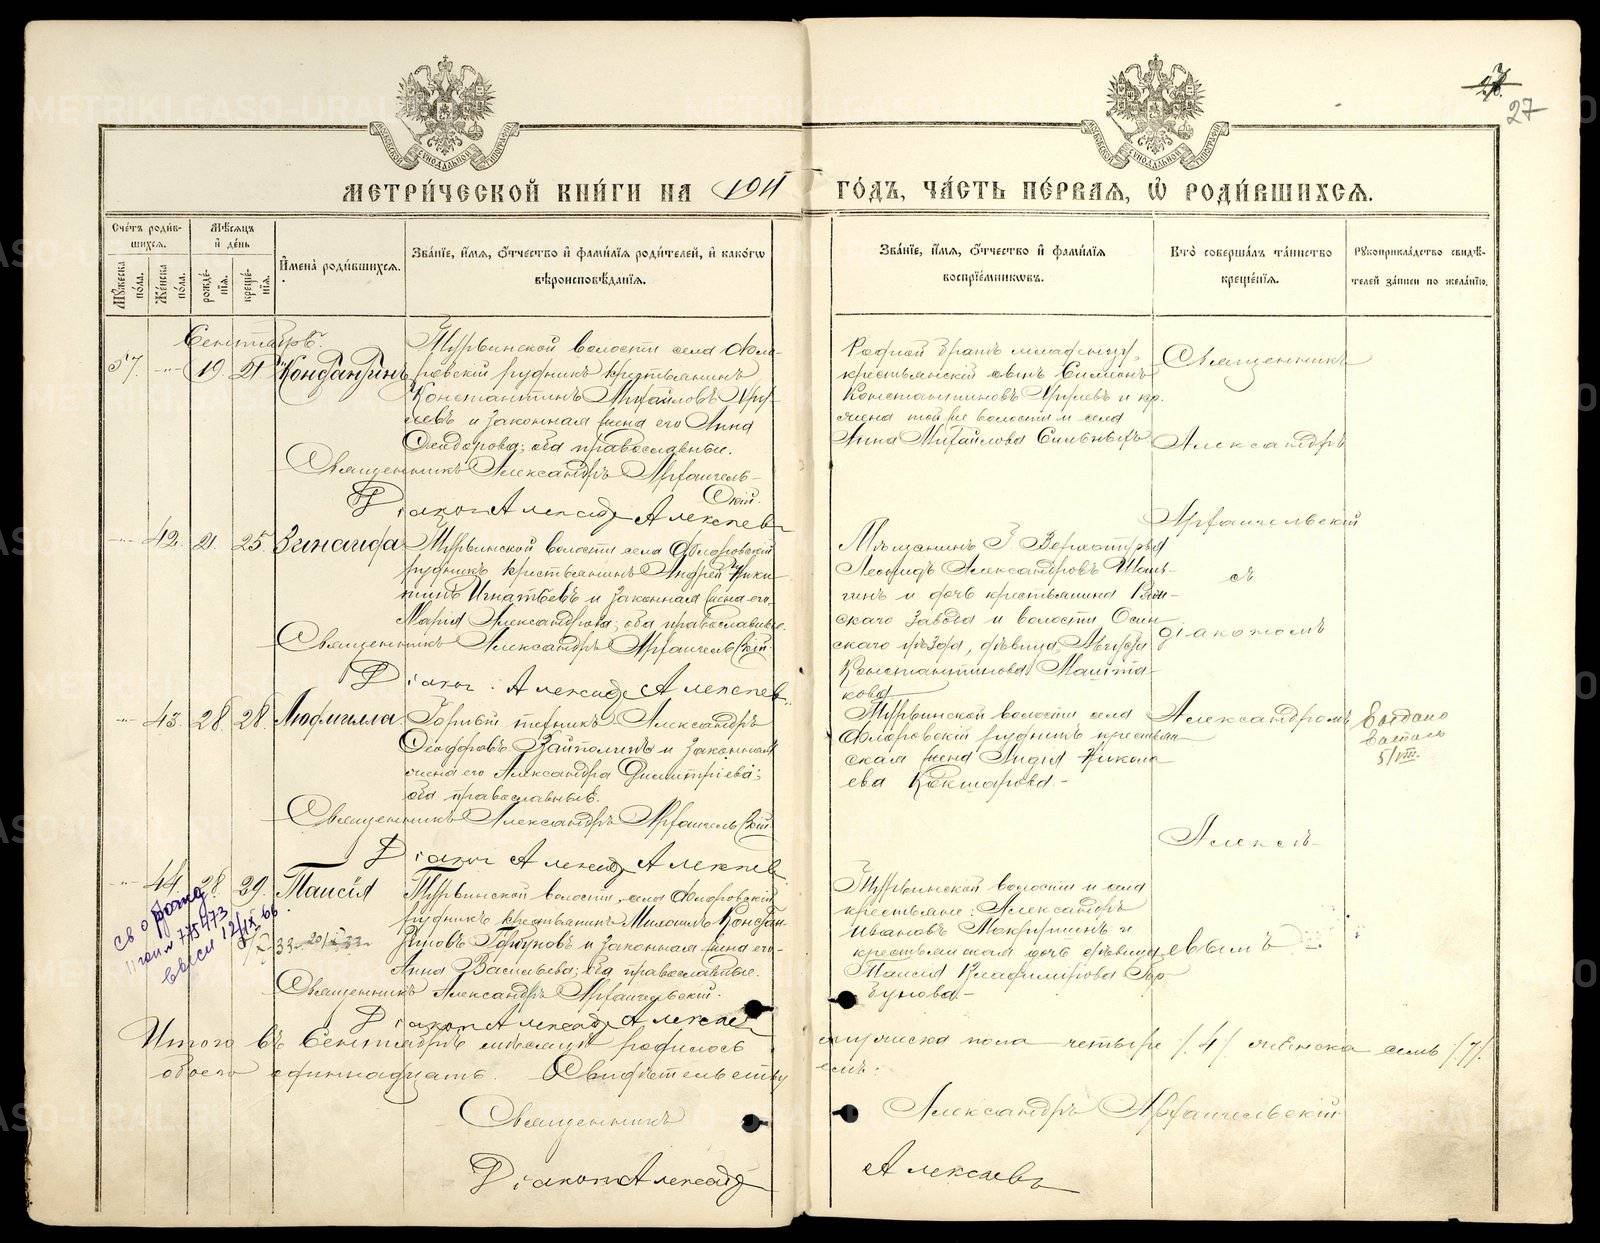 27
МЕТРИ́ЧЕСКОЙ КНИ́ГИ НА 1911 ГО́ДЪ, ЧА́СТЬ ПЕ́РВАЯ, Ѡ РОДИ́ВШИХСЯ.
Сче́тъ роди́вшихся.
Мꙋ́жеска по́ла.
Же́нска по́ла.
Мѣ́сяцъ и҆ де́нь
рожде́нїя.
креще́нїя.
И҆мена̀ роди́вшихся.
Зва́нїе, и҆́мя, ѻ҆́тчество и҆ фами́лїя роди́телей, и҆ како́гѡ вѣроисповѣ́данїя.
Зва́нїе, и҆́мя, ѻ҆́тчество и҆ фами́лїя воспрїе́мниковъ.
Кто̀ соверша́лъ та́инство креще́нїя.
Рꙋкоприкла́дство свидѣ́телей за́писи по жела́нїю.
Сентябрь.
37. 19 21 Константинъ
Турьинской волости села Фроловскій рудникъ крестьянинъ
Константинъ Михайловъ
и законная жена его Анна
Ѳеодорова; оба православные.
Священникъ Александръ Архангельскій.
Діаконъ Александръ Алексѣевъ
Родной братъ младенца,
крестьянскій сынъ Симеонъ
Константиновъ и кр.
жена той же волости и села
Анна Михайлова
Священникъ
Александръ
Архангельскій
съ
діакономъ
Александромъ
Алексѣевымъ
42. 21. 25. Зинаида
Турьинской волости села Фроловскій
рудникъ крестьянинъ Андрей Никитинъ
Игнатьевъ и законная жена его
Марія Александрова; оба православные.
Священникъ Александръ Архангельскій.
Діаконъ Александръ Алексѣевъ
Мѣщанинъ г. Верхотурья
Леонидъ Александровъ
и дочь крестьянина
завода и волости Осинскаго
уѣзда, дѣвица
Константинова
43. 28. 28. Людмилла
Горный техникъ Александръ
Ѳеодоровъ и законная
жена его Александра Димитріева;
оба православные.
Священникъ Александръ Архангельскій
Діаконъ Александръ Алексѣевъ
Турьинской волости села
Фроловскій рудникъ крестьянская
жена Лидія Николаева
Кокшарова.
5/VIII.
44. 28. 29. Таисія
Турьинской волости, села Фроловскій
рудникъ крестьянинъ Михаилъ Константиновъ
Горбуновъ и законная жена его
Анна Васильева; оба православные.
Священникъ Александръ Архангельскій.
Діаконъ Александръ Алексѣевъ
Турьинской волости и села
крестьяне: Александръ
Ивановъ Мокрушинъ и
крестьянская дочь дѣвица
Таисія Владимірова Горбунова.
Итого въ Сентябрѣ мѣсяцѣ родилось мужеска пола четыре /4/ женска семь /7/.
обоего одиннадцать. Свидѣтельствуемъ:
Священникъ Александръ Архангельскій
Діаконъ Александръ Алексѣевъ
METRIKI.GASO-URAL.RU